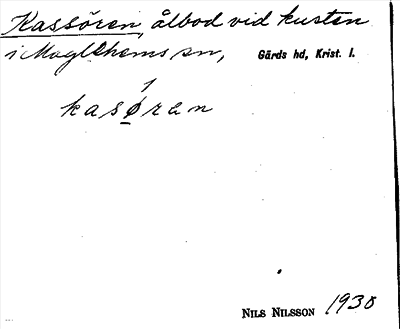 Kassören, ålbod vid kusten
i Maglehems sn, Gärds hd, Krist. l.
kasøran
Nils Nilsson 1930